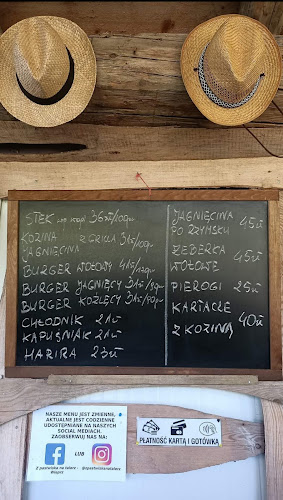 STEK 36zł/100gr
KOZINA Z GRILLA 31zł/100gr
JAGNIĘCINA
BURGER WOŁOWY 41zł
BURGER JAGNIĘCY 31zł
BURGER KOŹLĘCY 31zł
CHŁODNIK 21zł
KAPUŚNIAK 21zł
HARIRA 23zł
JAGNIĘCINA
PO RZYMSKU 45zł
ŻEBERKA
WOŁOWE 45zł
PIEROGI 25zł
KARTACZE
Z KOZINĄ 40zł
NASZE MENU JEST ZMIENNE,
AKTUALNE JEST CODZIENNE
UDOSTĘPNIANE NA NASZYCH
SOCIAL MEDIACH.
ZAOBSERWUJ NAS NA:
f LUB
Z pastwiska na talerz -
PŁATNOŚĆ KARTĄ I GOTÓWKĄ